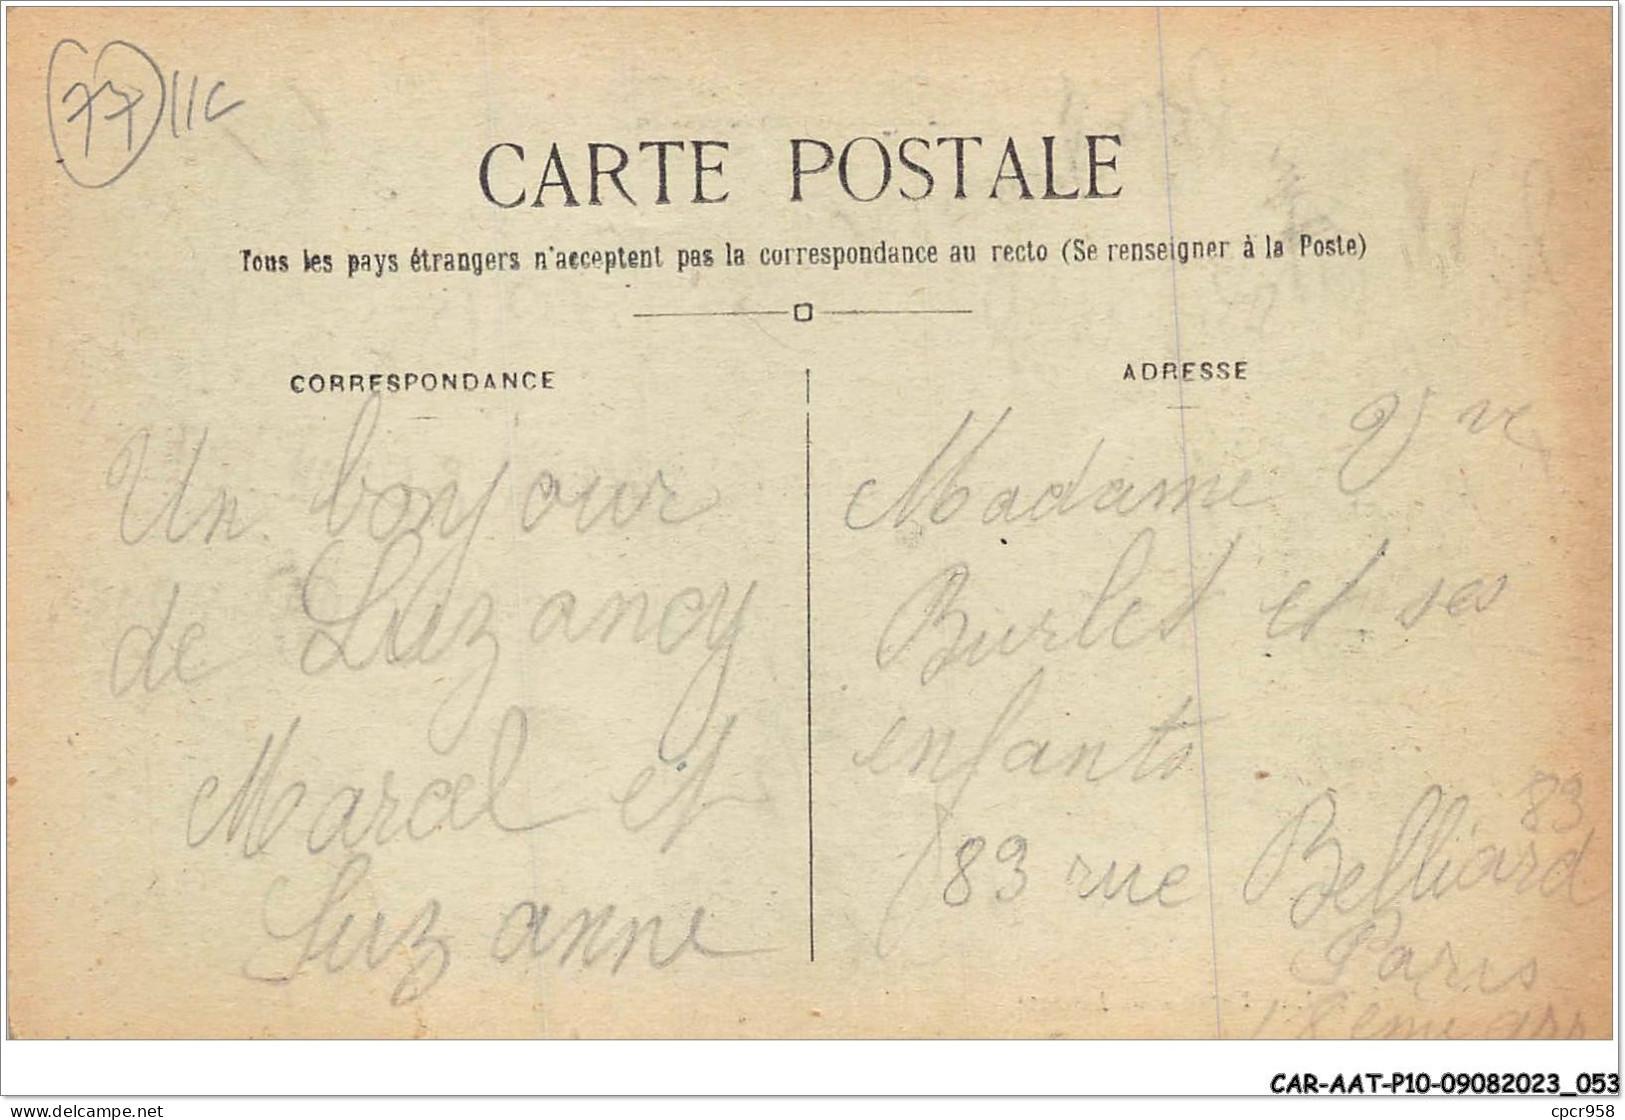 77 11C
CARTE POSTALE
Tous les pays étrangers n'acceptent pas la correspondance au recto (Se renseigner à la Poste)
CORRESPONDANCE
Un bonjour
de Luzancy
Marcel et
Suzanne
ADRESSE
Madame Vve
Burlet et ses
enfants
83
83 rue Belliard
Paris
18eme arr
CAR-AAT-P10-09082023_053
www.delcampe.net
cpcr958